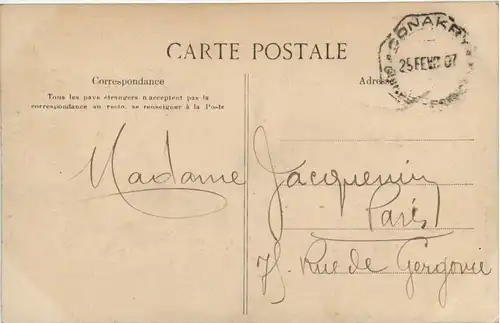 CARTE POSTALE
CONAKRY
25 FEVR 07
Correspondance
Tous les pays étrangers n'acceptent pas la
correspondance au recto, se renseigner à la Poste
Adresse
Madame Jacquemin
Paris
75, Rue de Gergovie